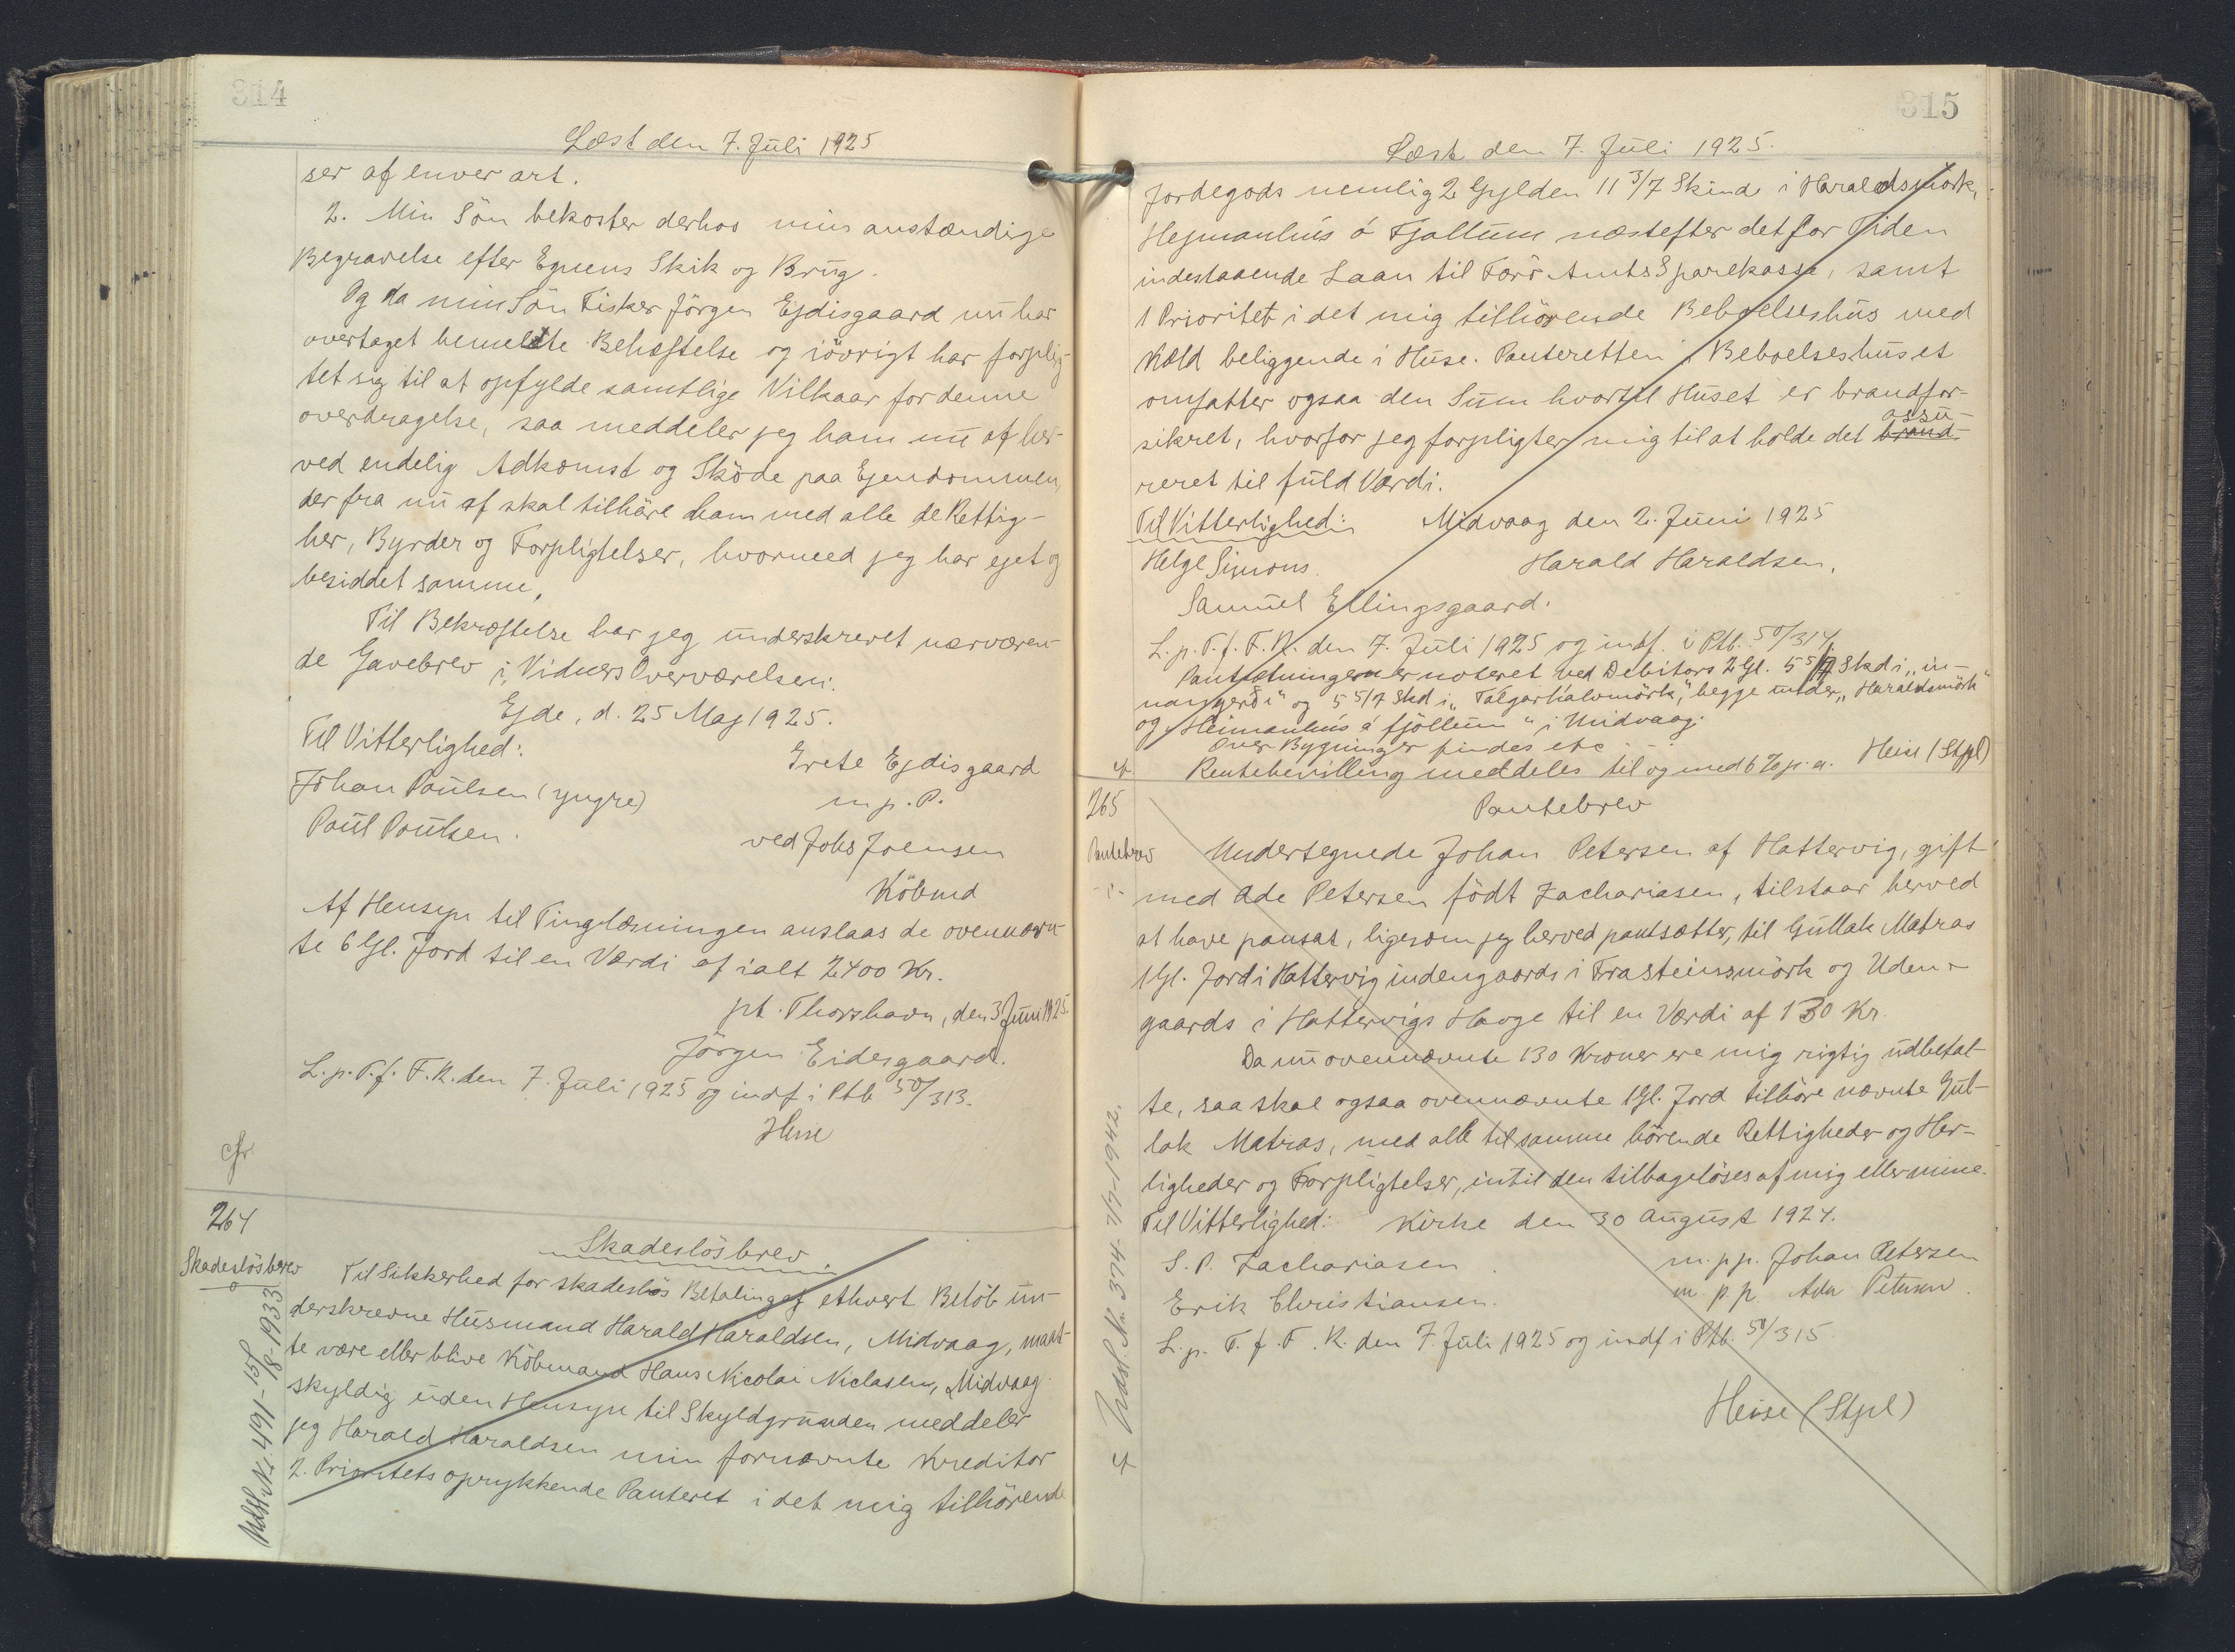 314
Læst den 7. Juli 1925
ser af enver art.
2. Min Sön bekoster derhos min anstændige
Begravelse efter Egnens Skik og Brug.
Og da min Sön Fisker Jörgen Ejdisgaard nu har
overtaget bemeldte Behæftelse og iövrigt har forplig-
tet sig til at opfylde samtlige Vilkaar for denne
overdragelse, saa meddeler jeg ham nu af her-
ved endelig Adkomst og Sköde paa Ejendommen,
der fra nu af skal tilhöre ham med alle de Rettig-
her, Byrder og Forpligtelser, hvormed jeg har ejet og
besiddet samme,
Til Bekræftelse har jeg underskrevet nærværen-
de Gavebrev i Vidners Overværelsen:
Ejde, d. 25 Maj 1925.
Til Vitterlighed:
Grete Ejdisgaard
Johan Poulsen (yngre)
m. p. P.
Poul Poulsen.
ved Johs Joensen
Köbmd
Af Hensyn til Tinglæsningen anslaas de ovennævn-
te 6 Gl. Jord til en Værdi af ialt 2400 Kr.
pt. Thorshavn, den 3 Juni 1925.
Jörgen Eidesgaard.
L. p. T. f. F. K. den 7. Juli 1925 og indf i Ptb 50/313.
Heise
cfr
264
Skadeslösbrev
Skadeslösbrev
Til Sikkerhed for skadeslös Betaling af ethvert Belöb un-
derskrevne Husmand Harald Haraldsen, Midvaag, maat-
te være eller blive Köbmand Hans Nicolai Niclasen, Midvaag
skyldig uden Hensyn til Skyldgrunden meddeler
jeg Harald Haraldsen min fornævnte Kreditor
2. Prioritets oprykkende Panteret i det mig tilhörende
Udsl. No 491 - 15/8-1933
315
Læst den 7. Juli 1925.
Jordegods nemlig 2 Gylden 11 3/7 Skind i Haraldsmørk,
Hejmanhús á Fjallum næstefter det for Tiden
indestaaende Laan til Færö Amts Sparekasse, samt
1 Prioritet i det mig tilhörende Beboelseshus med
Kæld beliggende i Huse. Panteretten i Beboelseshuset
omfatter ogsaa den Sum hvortil Huset er brandfor-
sikret, hvorfor jeg forpligter mig til at holde det brand- assu-
reret til fuld Værdi.
Til Vitterlighed: Midvaag den 2. Juni 1925
Helge Simons. Harald Haraldsen.
Samuel Ellingsgaard.
L. p. T. f. F. K. den 7. Juli 1925 og indf. i Ptb. 50/314.
Pantsætningen er noteret ved Debitors 2 Gl. 5 5/7 Skd i „in-
nangerdi" og 5 5/7 Skd i „Talgarhálvmörk", begge under „Haraldsmörk"
og „Heimanhús á fjöllum" i Midvaag.
Over Bygninger findes etc
Rentebevilling meddeles til og med 6 % p. a. Heise (Stpl)
265
Pantebrev
Pantebrev
Undertegnede Johan Petersen af Hattervig, gift
med Ada Petersen födt Zachariasen, tilstaar herved
at have pansat, ligesom jeg herved pantsætter, til Gullak Matras
1 Gl. Jord i Hattervig indengaards i Trasteinsmörk og Uden-
gaards i Hattervigs Hauge til en Værdi af 130 Kr.
Da nu ovennævnte 130 Kroner ere mig rigtig udbetal-
te, saa skal ogsaa ovennævnte 1 Gl. Jord tilhöre nævnte Gul-
lak Matras, med alle til samme hörende Rettigheder og Her-
ligheder og Forpligtelser, intil den tilbagelöses af mig eller mine.
Til Vitterlighed: Kirke den 30 August 1924.
S. P. Zachariasen m. p. p. Johan Petersen
Erik Christiansen. m. p. p. Ada Petersen.
L. p. T. f. F. K. den 7. Juli 1925 og indf i Ptb. 50/315
Heise (Stpl)
cf Udsl. Nr. 374- 7/9-1942.